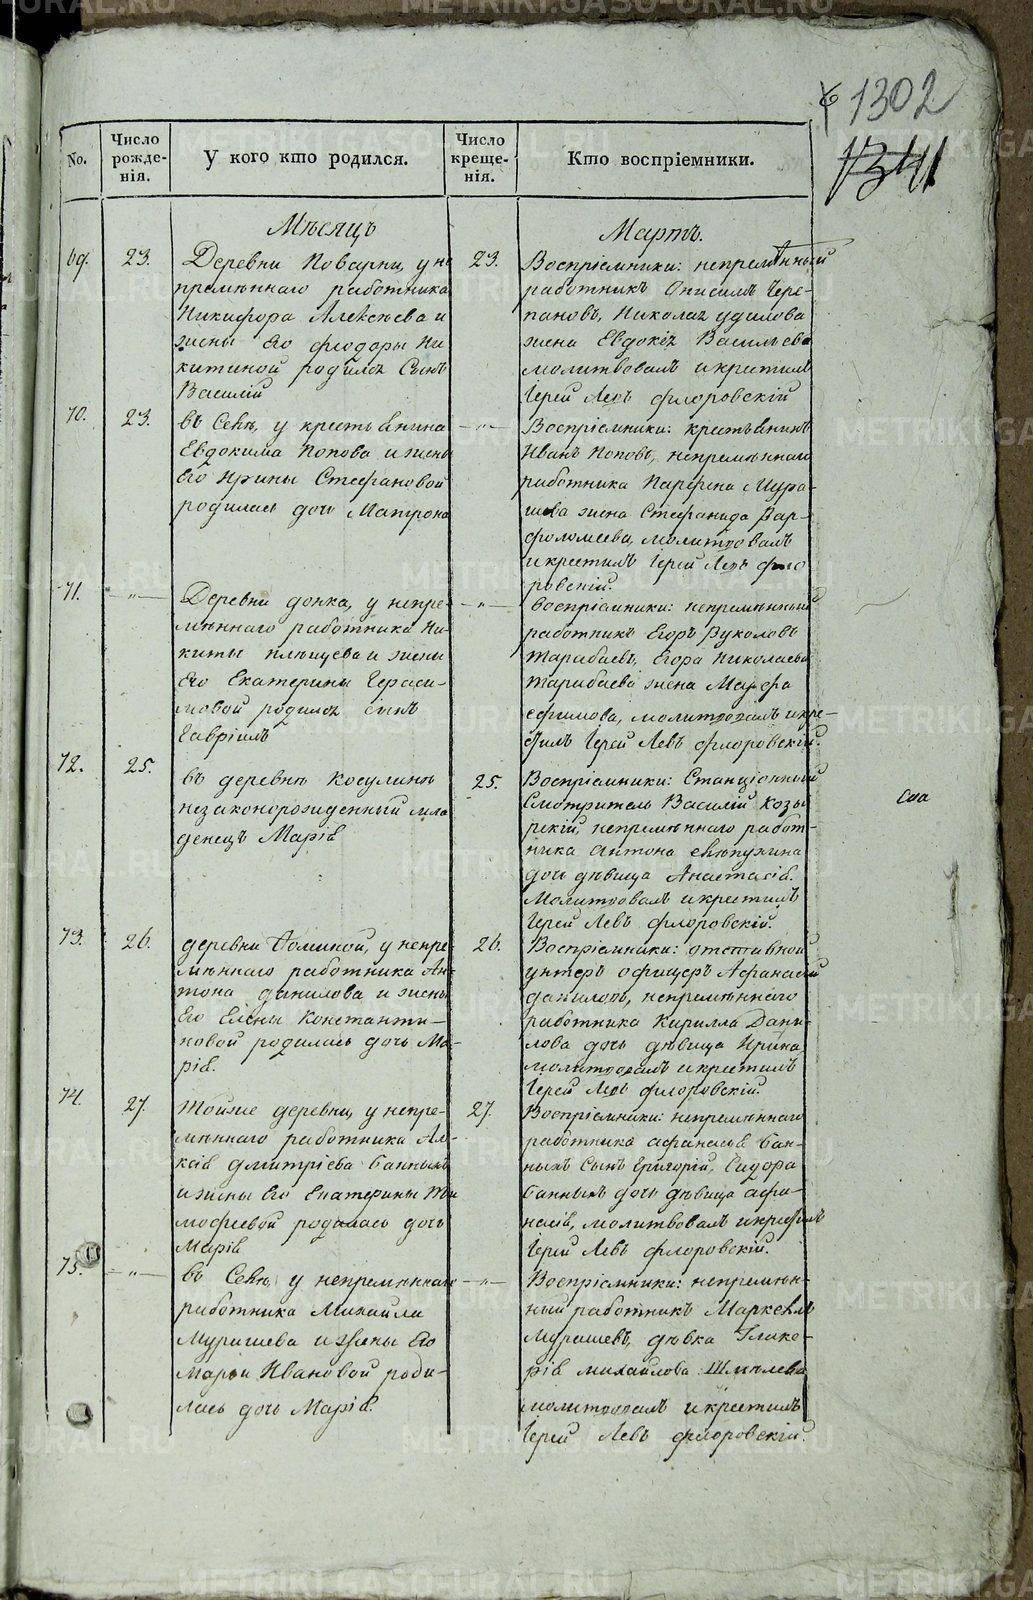 1302
1341
No.
Число рожде-нія.
У кого кто родился.
Число креще-нія.
Кто воспріемники.
Мѣсяцъ
Мартъ.
69.
23.
Деревни Поварни, у не
премѣннаго работника
Никифора Алексѣева и
жены его Ѳеодоры Ни
китиной родился Сынъ
Василій
23.
Воспріемники: непремѣнный
работникъ Описимъ Чере-
пановъ, Николая Удилова
жена Евдокія Васильева
молитвовалъ и крестилъ
Іерей Левъ Флоровскій
70.
23.
въ Селѣ, у крестьянина
Евдокима Попова и жены
Его Ирины Стефановой
родилась дочь Матрона
— „ —
Воспріемники: крестьянинъ
Иванъ Поповъ, непремѣннаго
работника Парфена Мура-
шева жена Стефанида Вар-
фоломеева, молитвовалъ
и крестилъ Іерей Левъ Фло
ровскій.
71.
— „ —
Деревни донка, у непре-
мѣннаго работника Ни-
киты Клѣщева и жены
Его Екатерины Гераси-
мовой родился сынъ
Гавріилъ
— „ —
Воспріемники: непремѣнный
работникъ Егоръ Вуколовъ
Тарабаевъ, Егора Николаева
Тарабаева жена Марѳа
ефимова, молитвовалъ и кре-
стилъ Іерей Левъ Флоровскій.
72.
25.
въ деревнѣ Косулинѣ
незаконорожденный мла
денецъ Марія
25.
Воспріемники: Станціонный
Смотритель Василій Козы
рскій, непремѣннаго работ-
ника Антона евлпухина
дочь дѣвица Анастасія.
Молитвовалъ и крестилъ
Іерей Левъ Флоровскій.
73.
26.
деревни Ѳоминой, у непре-
мѣннаго работника Ан-
тона данилова и жены
Его Елены Константи-
новой родилась дочь Ма-
рія.
26.
Воспріемники: отставной
унтеръ офицеръ Афанасій
даниловъ, непремѣннаго
работника Кирилла Дани-
лова дочь дѣвица Ирина
молитвовалъ и крестилъ
Іерей Левъ Флоровскій.
74.
27.
Тойже деревни, у непре-
мѣннаго работника Але-
ксія дмитріева Банныхъ
и жены Его Екатерины Ти
мофеевой родилась дочь
Марія
27.
Воспріемники: непремѣннаго
работника афанасья Бан-
ныхъ Сынъ Григорій, Сидора
Банныхъ дочь дѣвица афа-
насія, молитвовалъ и крестилъ
Іерей Левъ Флоровскій.
75.
— „ —
въ Селѣ у непремѣннаго
работника Михаила
Мурашева и жены Его
Марьи Ивановой роди-
лась дочь Марія.
— „ —
Воспріемники: непремѣн-
ный работникъ Маркелъ
Мурашевъ, дѣвка Глике-
рія михайлова Шмелева
молитвовалъ и крестилъ
Іерей Левъ Флоровскій.